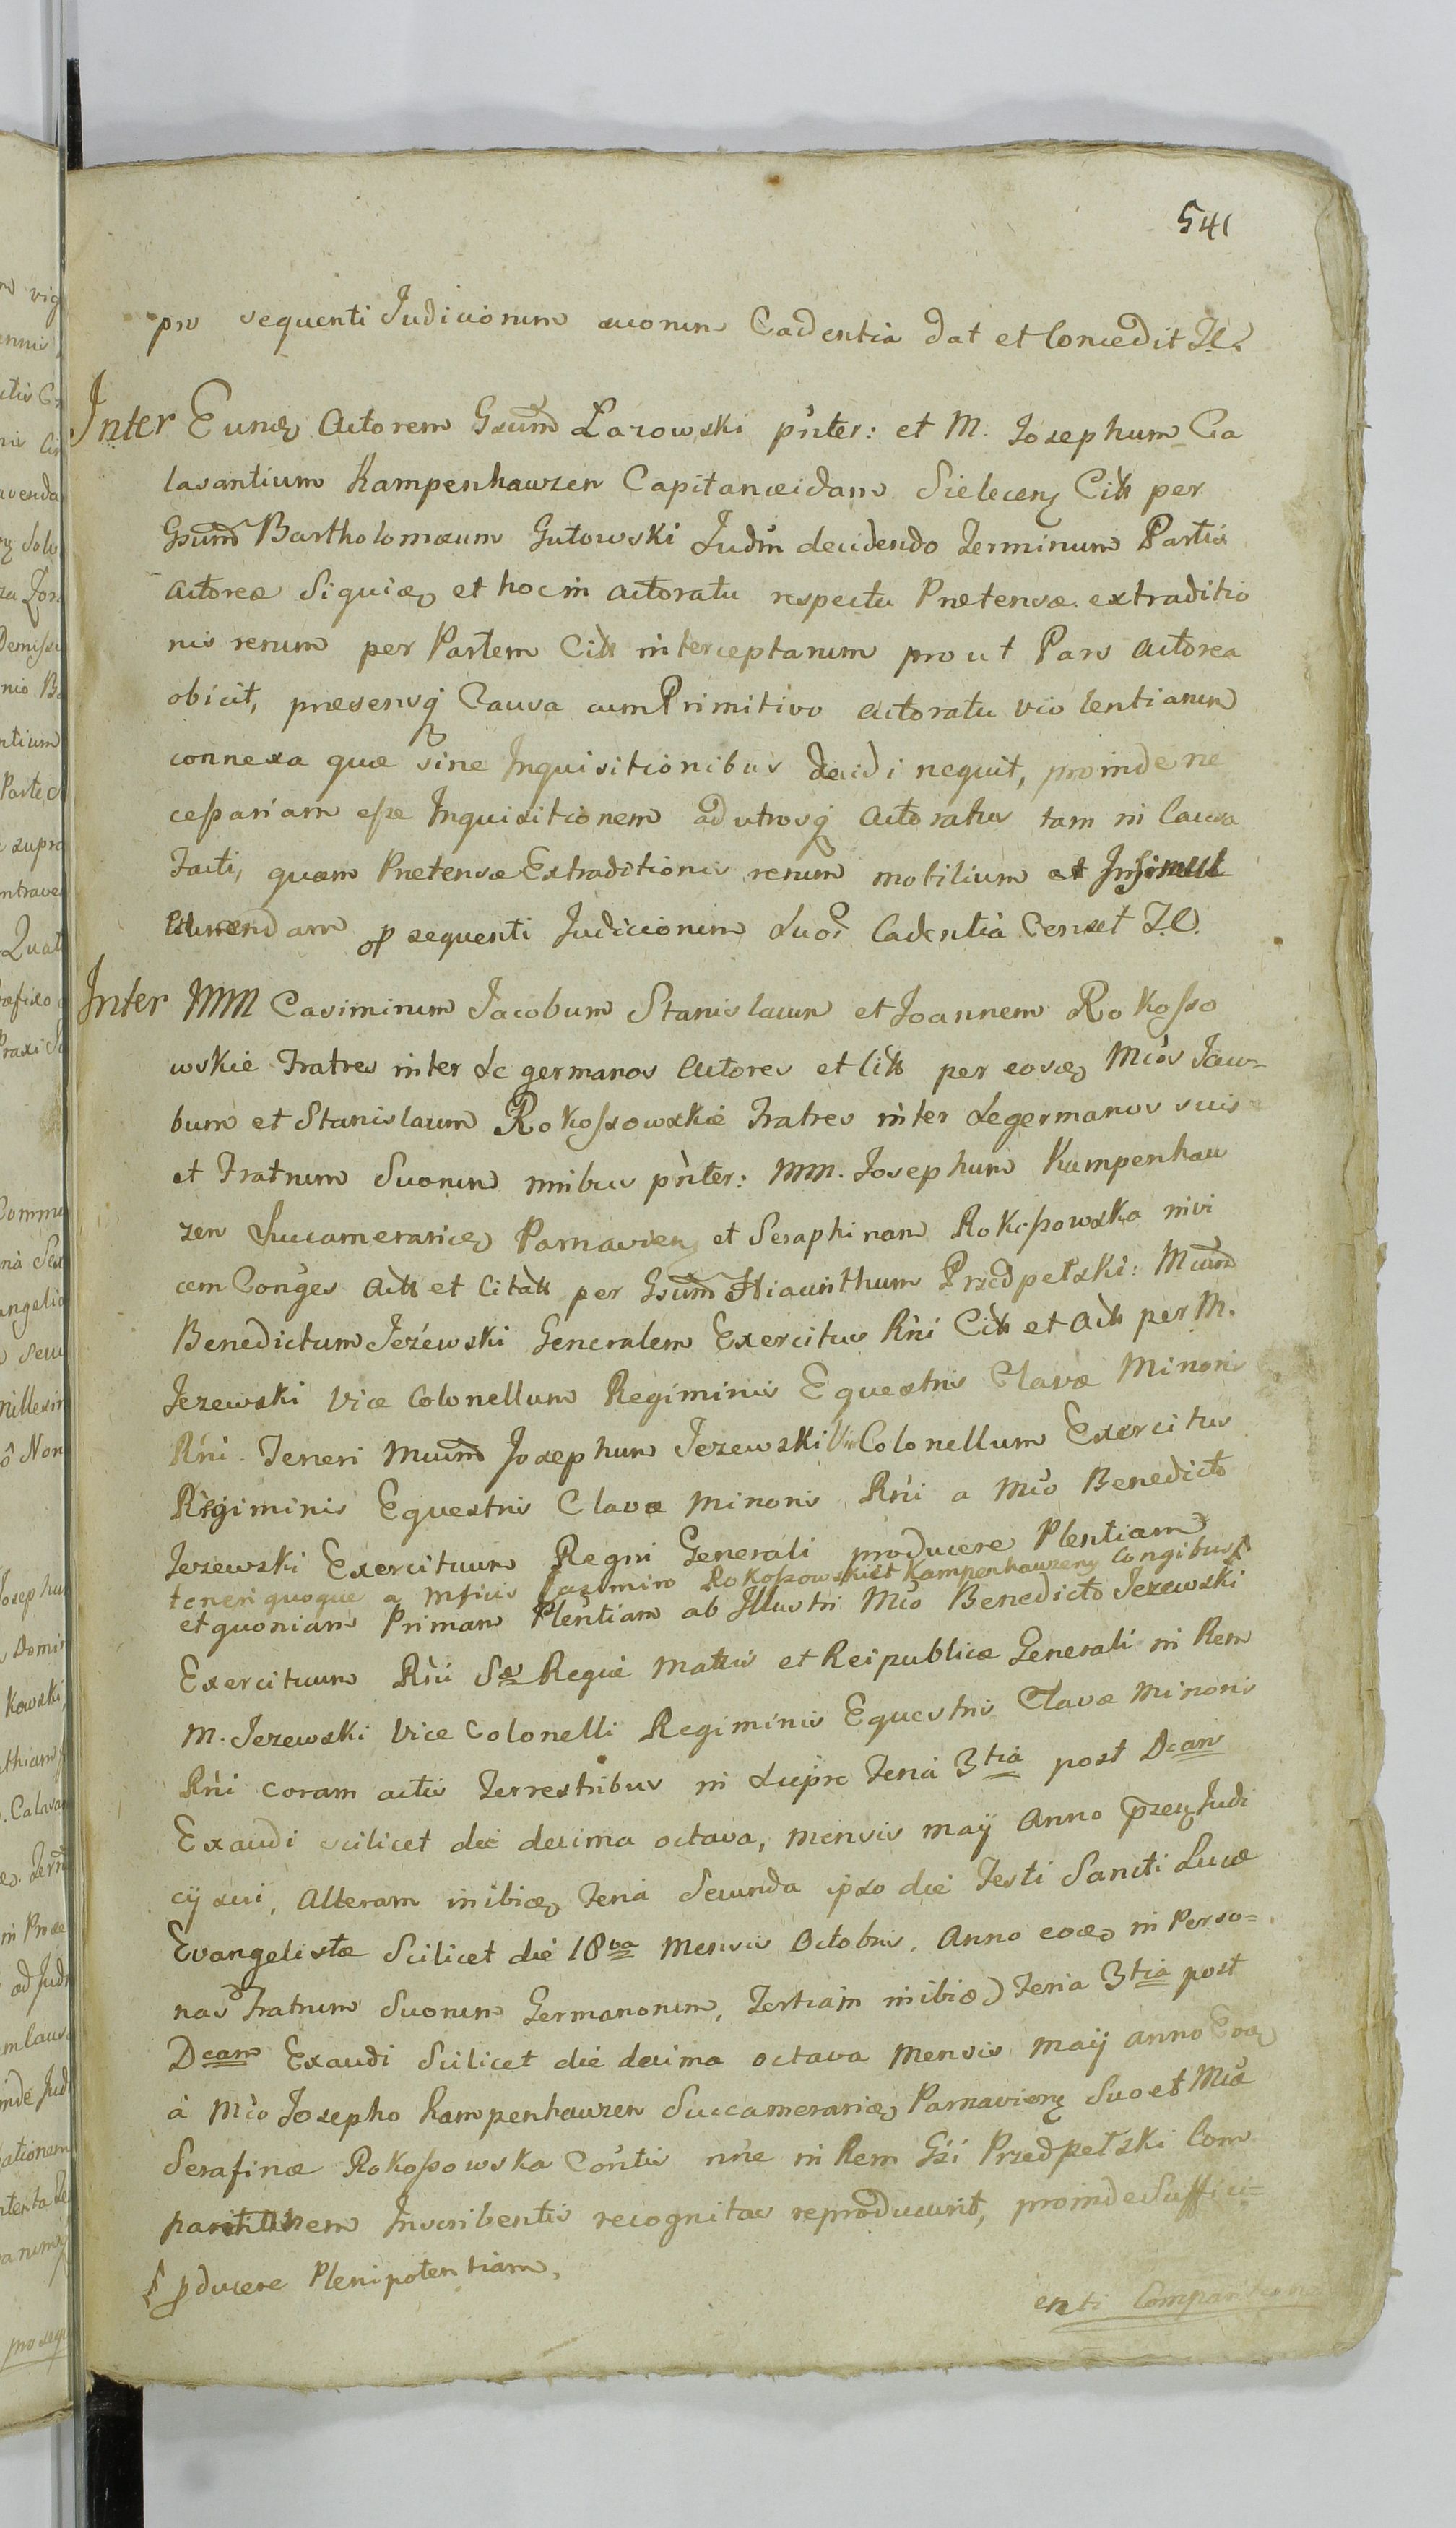 541
pro sequenti Judiciorum suorum Cadentia dat et Concedit J.C.
Inter Eundẽ Actorem Gsum Lazowski pnter: et M. Josephum Ca
lasantium Kampenhawzen Capitaneidam Sielecen Citt per
Gsum Bartholomæum Gutowski Judm decidendo Terminum Partis
Actoreæ Siquidẽ et hoc in actoratu respectu Prætensæ extraditio
nis rerum per Partem Citt interceptarum prout Pars Actorea
obicit, præsensq Causa cum Primitivo Actoratu violentiarum
connexa quæ sine Inquisitionibus decidi nequit, proinde ne
cessariam esse Inquisitionem ad utrosq Actoratus tam in Causa
Facti, quam Prætensæ Extraditionis rerum mobilium et Insimul
p sequenti Judiciorum Suor Cadentia Censet J.C.
Inter MM Casimirum Jacobum Stanislaum et Joannem Rokosso
wskie Fratres inter Se germanos Actores et Citt per eosdẽ Mcos Jaco=
bum et Stanislaum Rokossowskie Fratres inter Se germanos suis
et Fratrum Suorum nnibus pnter: MM. Josephum Kampenhau
zen Succameraridẽ Parnavien et Seraphinam Rokossowska invi
cem Conges Actt et Citatt per Gsum Hiacinthum Przedpełski: Mcum
Benedictum Jeżewski Generalem Exercitus Rni Citt et Actt per M.
Jezewski Vice Colonellum Regiminis Equestris Clavæ Minoris
Rni. Teneri Mcum Josephum Jezewski Vice Colonellum Exercitus
Regiminis Equestris Clavæ Minoris Rni a Mco Benedicto
Jezewski Exercituum Regni Generali producere Plentiam
teneri quoque a Mficis Casimiro Rokossowski et Kampenhauzeny Congibus
et quoniam Primam Plentiam ab Illustri Mco Benedicto Jezewski
Exercituum Rni Sæ Regiæ Mattis et Reipublicæ Generali in Rem
M. Jezewski Vice Colonelli Regiminis Equestris Clavæ Minoris
Rni coram actis Terrestribus in Suprc Feria 3tia post Dcam
Exaudi scilicet die decima octava, mensis maij Anno præzen Judi
cij sui, Alteram inibidẽ Feria Secunda ipso die Festi Sancti Lucæ
Evangelistæ Scilicet die 18va Mensis Octobris, Anno eodẽ in Perso=
nas Fratrum Suorum Germanorum, Tertiam inibidẽ Feria 3tia post
Dcam Exaudi Scilicet die decima octava Mensis Maij anno Eodẽ
à Mco Josepho Kampenhauzen Succameraridẽ Parnavien Suo et Mcæ
Serafinæ Rokossowska Contis nne in Rem Gsi Przedpełski Com
paritionem Inscribentis recognitas reproducunt, proinde Suffici=
pducere Plenipotentiam.
enti Comparitione